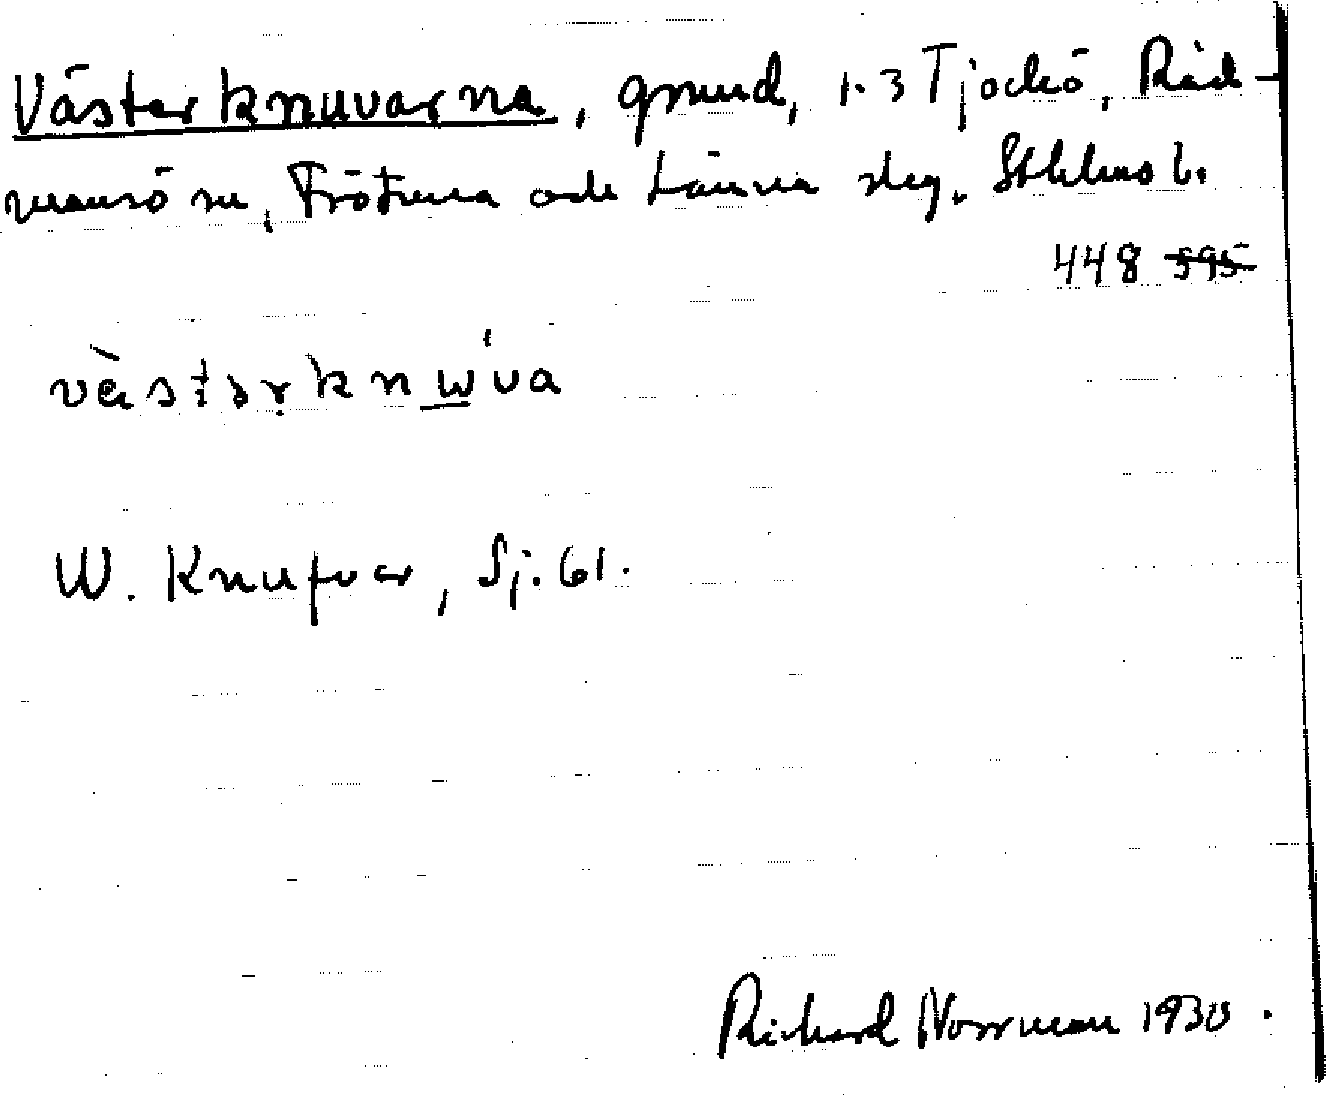 Västerknuvarna, grund, 1.3 Tjockö, Råd-
mansö sn, Frötuna och Länna skg. Sthlms l.
448 595
västərknuva
W. Knufvar, Sj. 61.
Richard Norrman 1930.